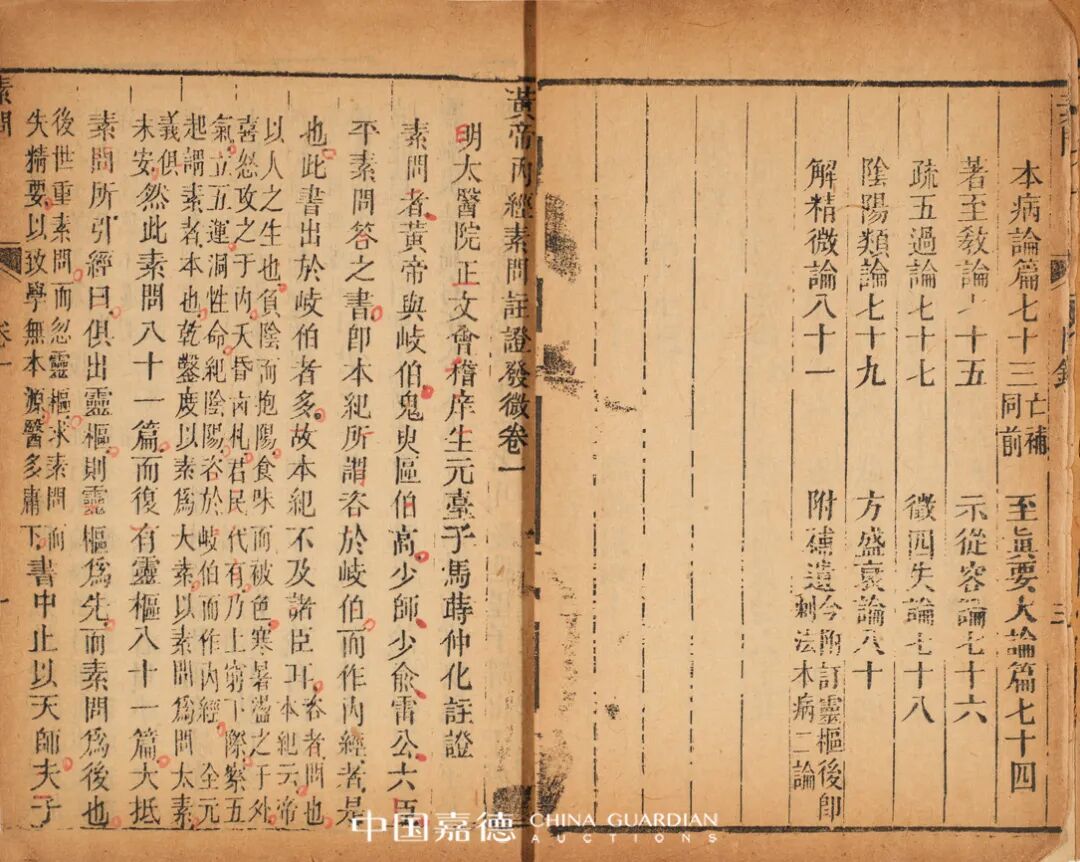 本病論篇七十三亡補同前 至眞要大論篇七十四
著至教論七十五 示從容論七十六
疏五過論七十七 徵四失論七十八
陰陽類論七十九 方盛衰論八十
解精微論八十一 附補遺今附訂靈樞後卽刺法本病二論
三
黃帝內經素問註證發微卷一
明太醫院正文會稽庠生元臺子馬蒔仲化註證
素問者黃帝與岐伯鬼臾區伯高少師少兪雷公六臣
平素問答之書卽本紀所謂咨於岐伯而作內經者是
也此書出於岐伯者多故本紀不及諸臣耳咨者問也本紀云帝
以人之生也負陰而抱陽食味而被色寒暑盪之于外
喜怒攻之于內夭昏凶札君民代有乃上窮下際察五
氣立五運洞性命紀陰陽咨於岐伯而作內經全元
起謂素者本也乾鑿度以素爲大素以素問爲問太素
義俱
未安然此素問八十一篇而復有靈樞八十一篇大抵
素問所引經曰俱出靈樞則靈樞爲先而素問爲後也
後世重素問而忽靈樞求素問而
失精要以致學無本源醫多庸下書中止以天師夫子
素問
卷一
一
中国嘉德 CHINA GUARDIAN
AUCTIONS